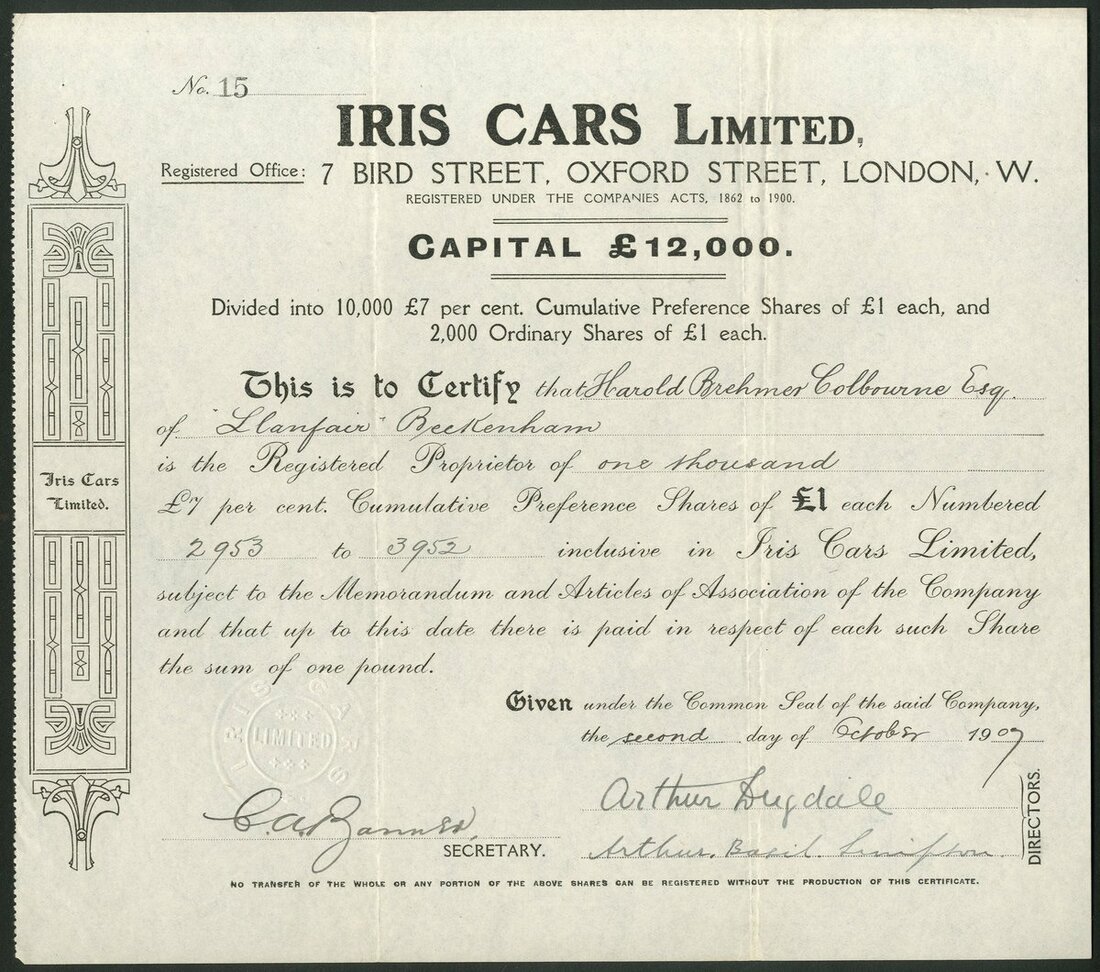 No. 15
IRIS CARS LIMITED,
Registered Office: 7 BIRD STREET, OXFORD STREET, LONDON, W.
REGISTERED UNDER THE COMPANIES ACTS, 1862 to 1900.
CAPITAL £12,000.
Divided into 10,000 £7 per cent. Cumulative Preference Shares of £1 each, and
2,000 Ordinary Shares of £1 each.
This is to Certify that Harold Brehmer Colbourne Esq.
of "Llanfair" Beckenham
is the Registered Proprietor of one thousand
£7 per cent. Cumulative Preference Shares of £1 each Numbered
2953 to 3952 inclusive in Iris Cars Limited,
subject to the Memorandum and Articles of Association of the Company
and that up to this date there is paid in respect of each such Share
the sum of one pound.
Given under the Common Seal of the said Company,
the second day of October 1907
Iris Cars
Limited.
IRIS CARS
LIMITED
Arthur Dugdale
C.A.
SECRETARY.
Arthur. Basil. Simpson.
DIRECTORS.
NO TRANSFER OF THE WHOLE OR ANY PORTION OF THE ABOVE SHARES CAN BE REGISTERED WITHOUT THE PRODUCTION OF THIS CERTIFICATE.